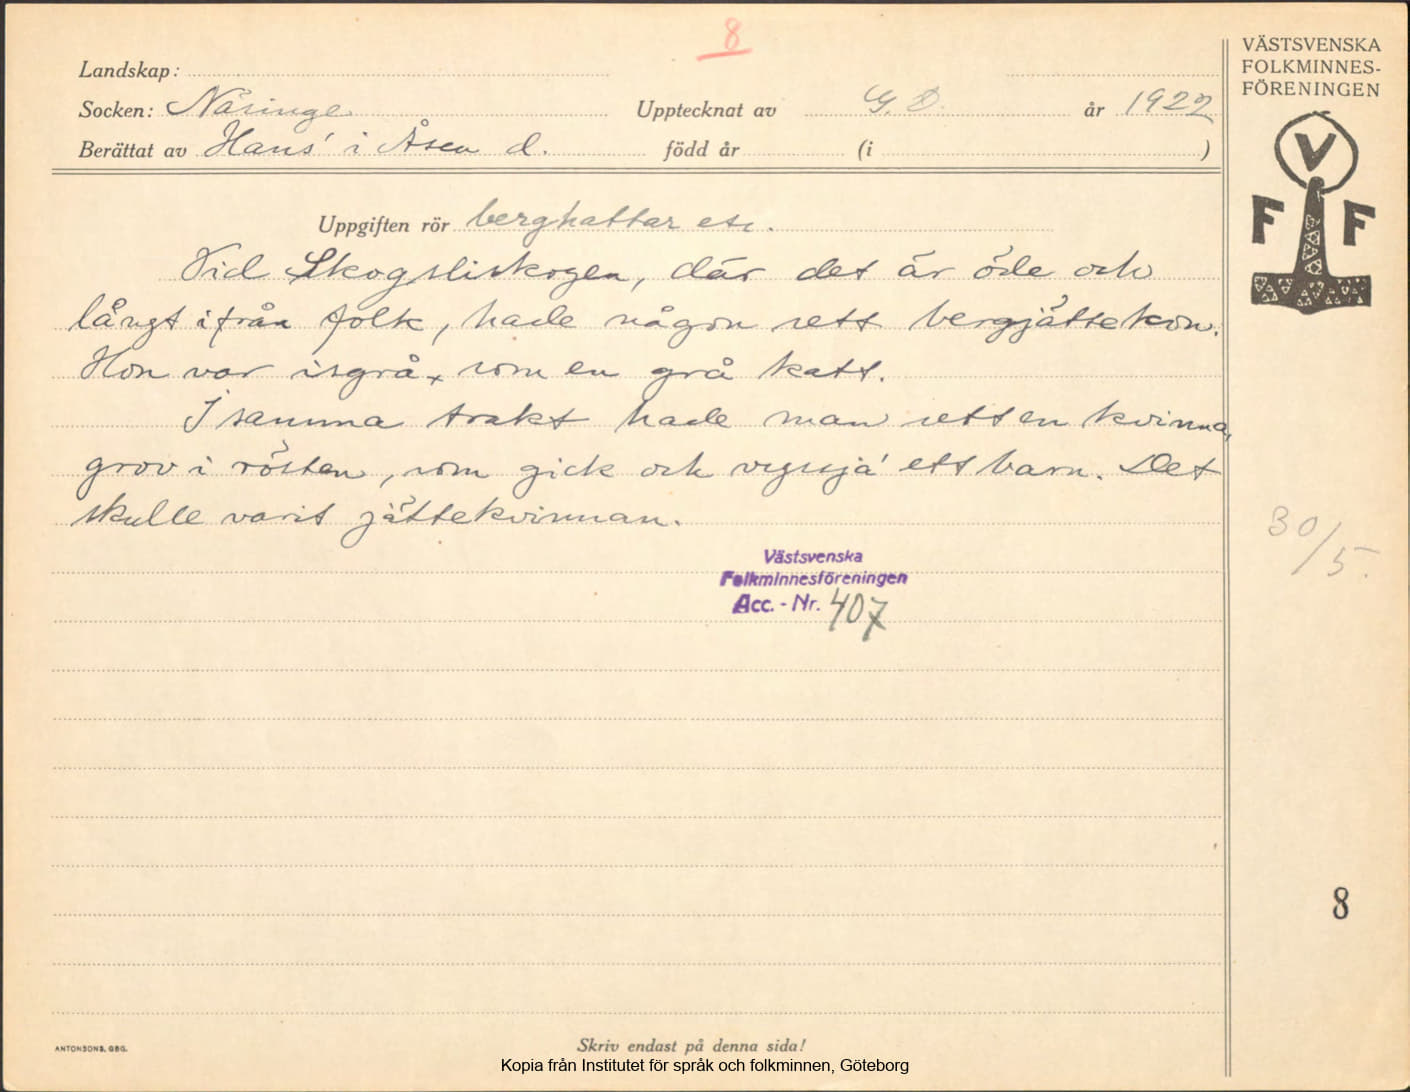 8
VÄSTSVENSKA
FOLKMINNES-
FÖRENINGEN
Landskap:
Socken: Näringe Upptecknat av G. D. år 1922
Berättat av Hans' i Åsen d. född år (i )
V
F F
Uppgiften rör berghattar etc.
Vid Skogsliskogen, där det är öde och
långt ifrån folk, hade någon sett bergjättekon.
Hon var isgrå, som en grå katt.
I samma trakt hade man sett en kvinna,
grov i rösten, som gick och vyssja' ett barn. Det
skulle varit jättekvinnan.
30/5.
Västsvenska
Folkminnesföreningen
Acc. - Nr. 407
8
ANTONSONS, GBG.
Skriv endast på denna sida!
Kopia från Institutet för språk och folkminnen, Göteborg